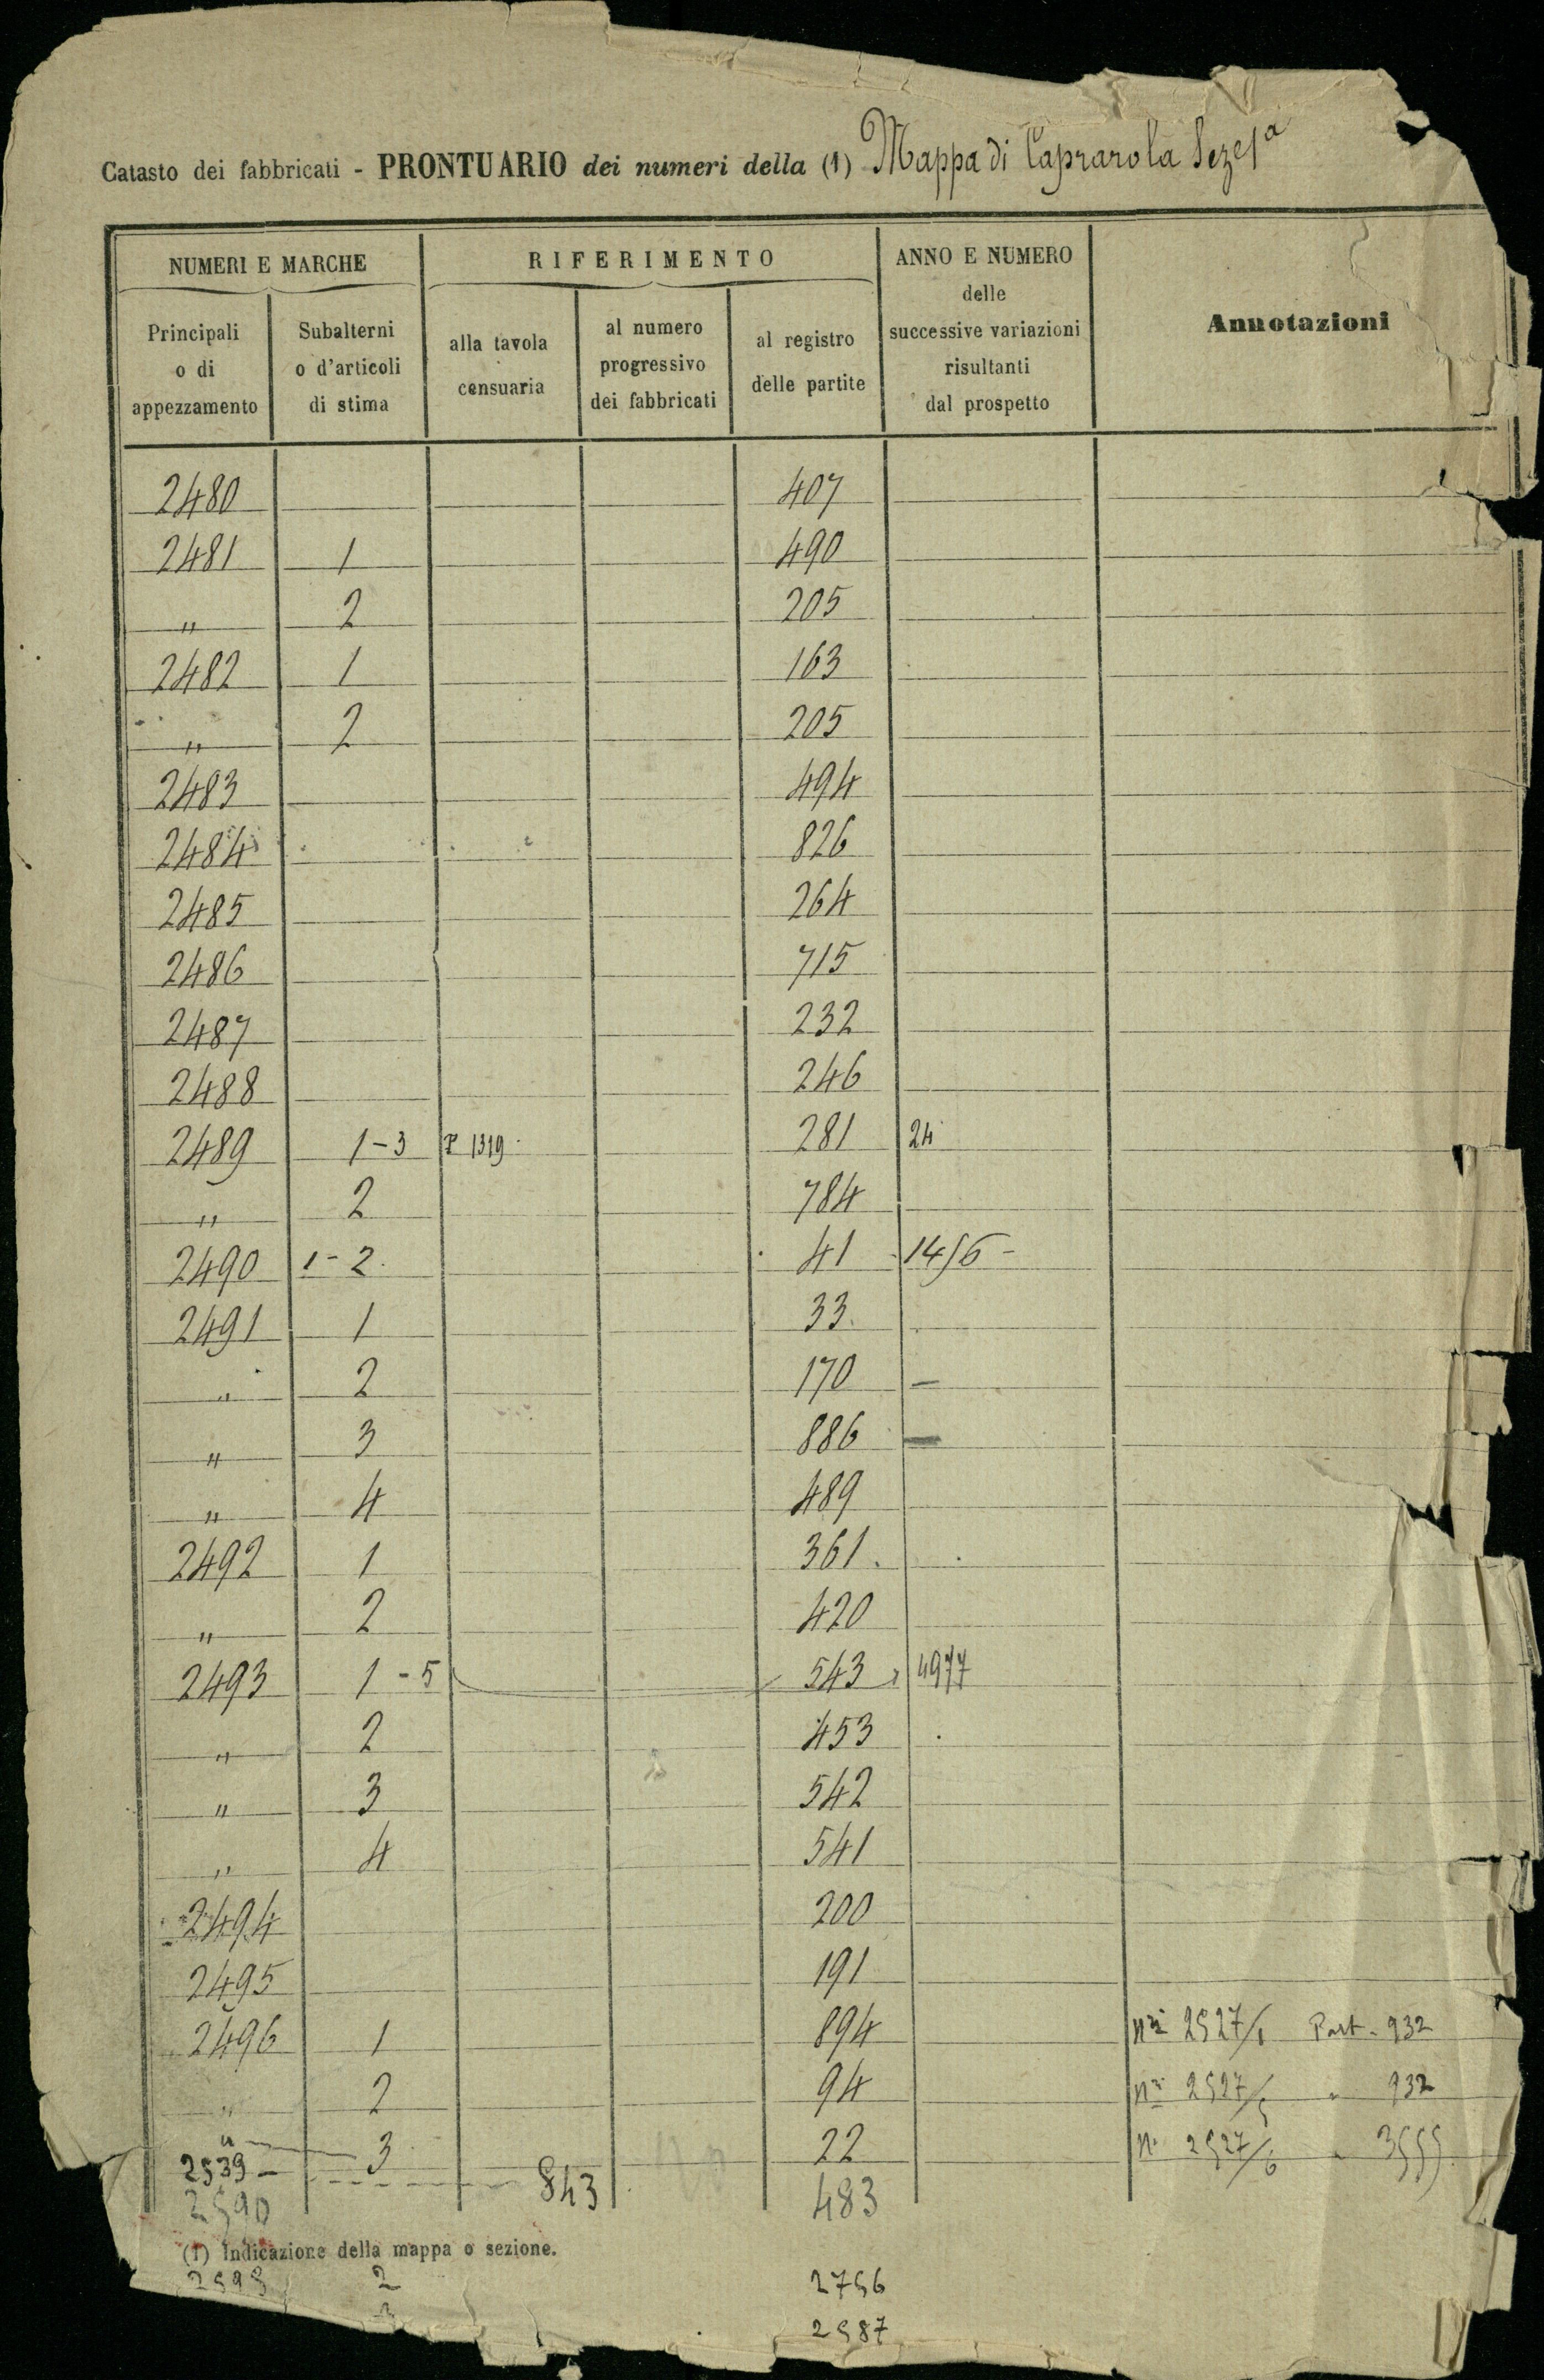 Catasto dei fabbricati - PRONTUARIO dei numeri della (1) Mappa di Caprarola Sez e 1a
NUMERI E MARCHE RIFERIMENTO ANNO E NUMERO delle successive variazioni risultanti dal prospetto Annotazioni
Principali o di appezzamento Subalterni o d'articoli di stima alla tavola censuaria al numero progressivo dei fabbricati al registro delle partite
2480 407
2481 1 490
" 2 205
2482 1 163
" 2 205
2483 494
2484 826
2485 264
2486 715
2487 232
2488 246
2489 1-3 P 1319 281 24
" 2 784
2490 1-2 41 1456
2491 1 33
" 2 170 —
" 3 886 —
" 4 489
2492 1 361
" 2 420
2493 1-5 543 4977
" 2 453
" 3 542
" 4 541
2494 200
2495 191
2496 1 894 2527/1 Part. 932
" 2 94 2527/5 " 932
" 3 22 2527/6 " 3555
2539 — 843
2590 483
(1) Indicazione della mappa o sezione.
2 2756
2587